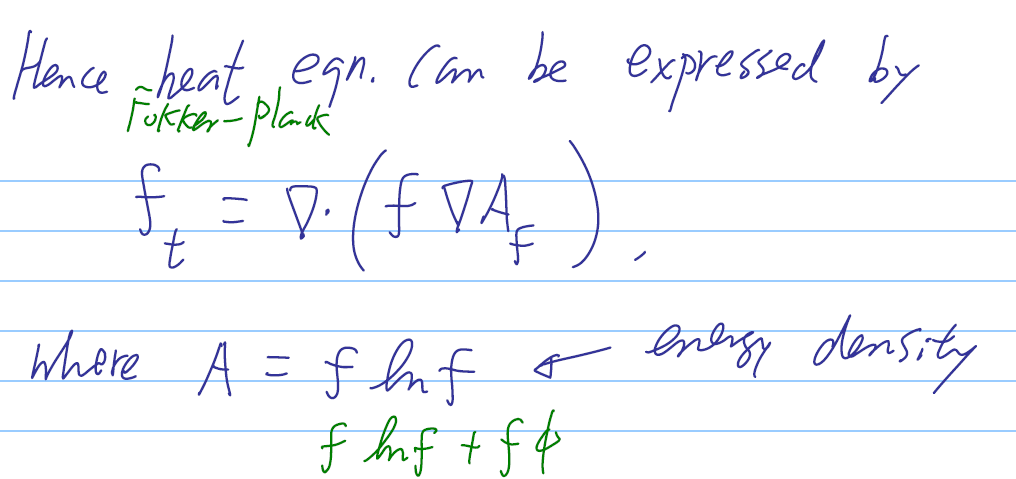 Hence heat eqn. can be expressed by
Fokker-Planck
f_t = ∇·(f ∇A_f),
where A = f ln f ← energy density
f ln f + f ϕ